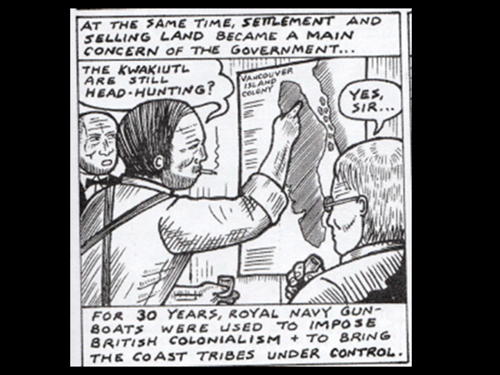 AT THE SAME TIME, SETTLEMENT AND
SELLING LAND BECAME A MAIN
CONCERN OF THE GOVERNMENT...
THE KWAKIUTL
ARE STILL
HEAD-HUNTING?
VANCOUVER
ISLAND
COLONY
YES,
SIR...
FOR 30 YEARS, ROYAL NAVY GUN-
BOATS WERE USED TO IMPOSE
BRITISH COLONIALISM + TO BRING
THE COAST TRIBES UNDER CONTROL.